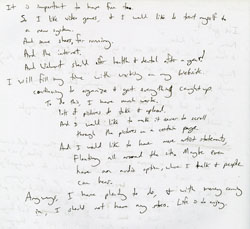 It is important to have fun too.
So I like video games, & I would like to treat myself to
a new system.
And some shoes, for running.
And the internet.
And Walmart should offer health & dental after a year!
I will fill my time with working on my website.
continuing to organize & get everything caught up.
To do this, I have much work.
lots of pictures to take & upload.
And I would like to make it easier to scroll
through the pictures on a certain page.
And I would like to have more artist statements,
Floating all around the site. Maybe even
have an audio option, where I talk & people
can hear.
Anyways, I have plenty to do, & with money coming
in, I should not have any stress. Life is to enjoy.